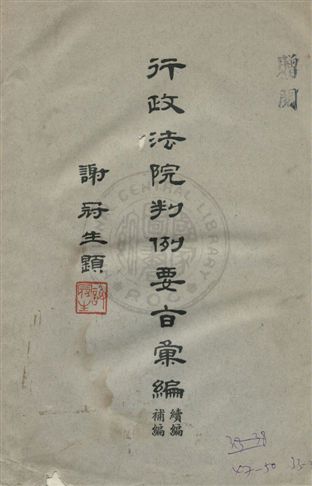 贈閱
行政法院判例要旨彙編
續編
補編
謝冠生題
謝冠生
33-38
47-50